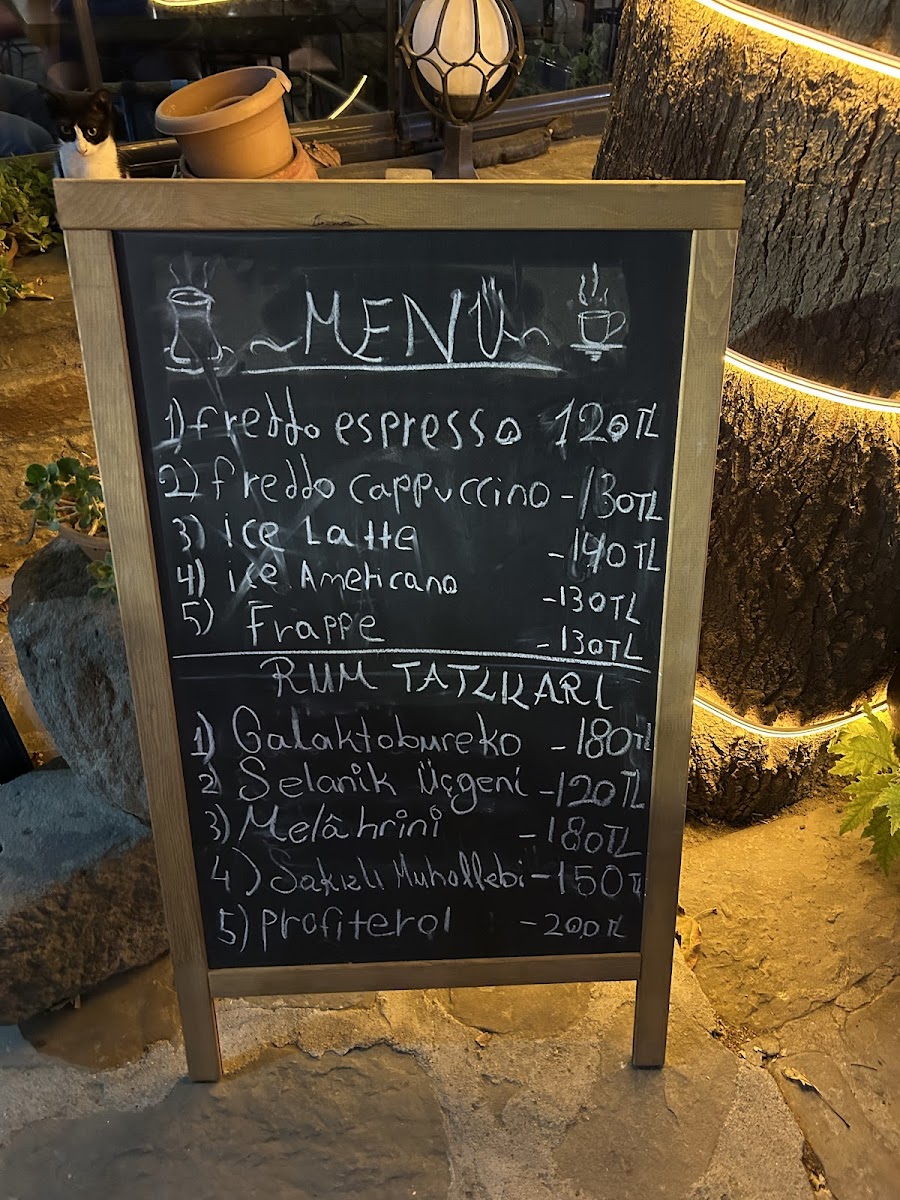 MENÜ
1) freddo espresso 120TL
2) freddo cappuccino - 130TL
3) ice Latte - 140TL
4) ice Americano - 130TL
5) Frappe - 130TL
RUM TATLILARI
1) Galaktobureko - 180TL
2 Selanik Üçgeni - 120TL
3) Melâhrini - 180TL
4) Sakızlı Muhallebi - 150TL
5) profiterol - 200TL